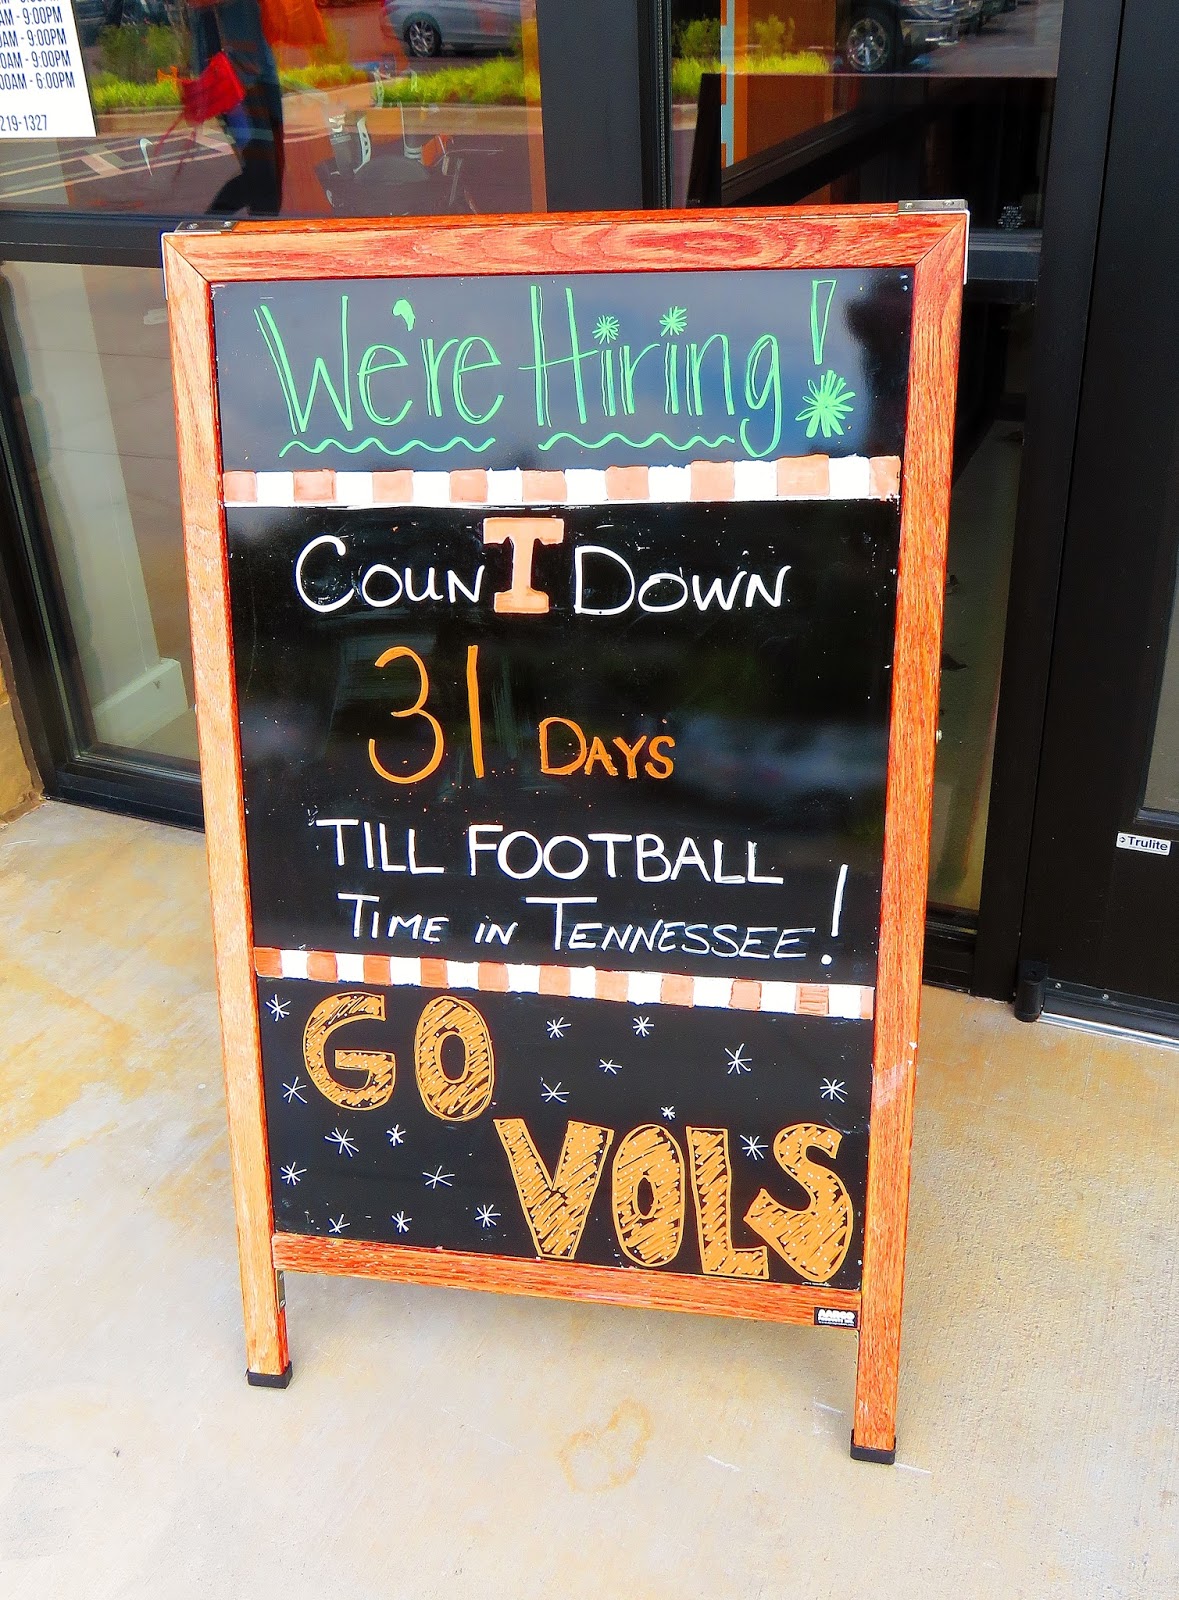 AM - 9:00PM
AM - 9:00PM
0AM - 9:00PM
0AM - 9:00PM
:00AM - 6:00PM
219-1327
We're Hiring!
CounTDown
31 Days
TILL FOOTBALL
Time in Tennessee!
GO
VOLS
Trulite
AARCO